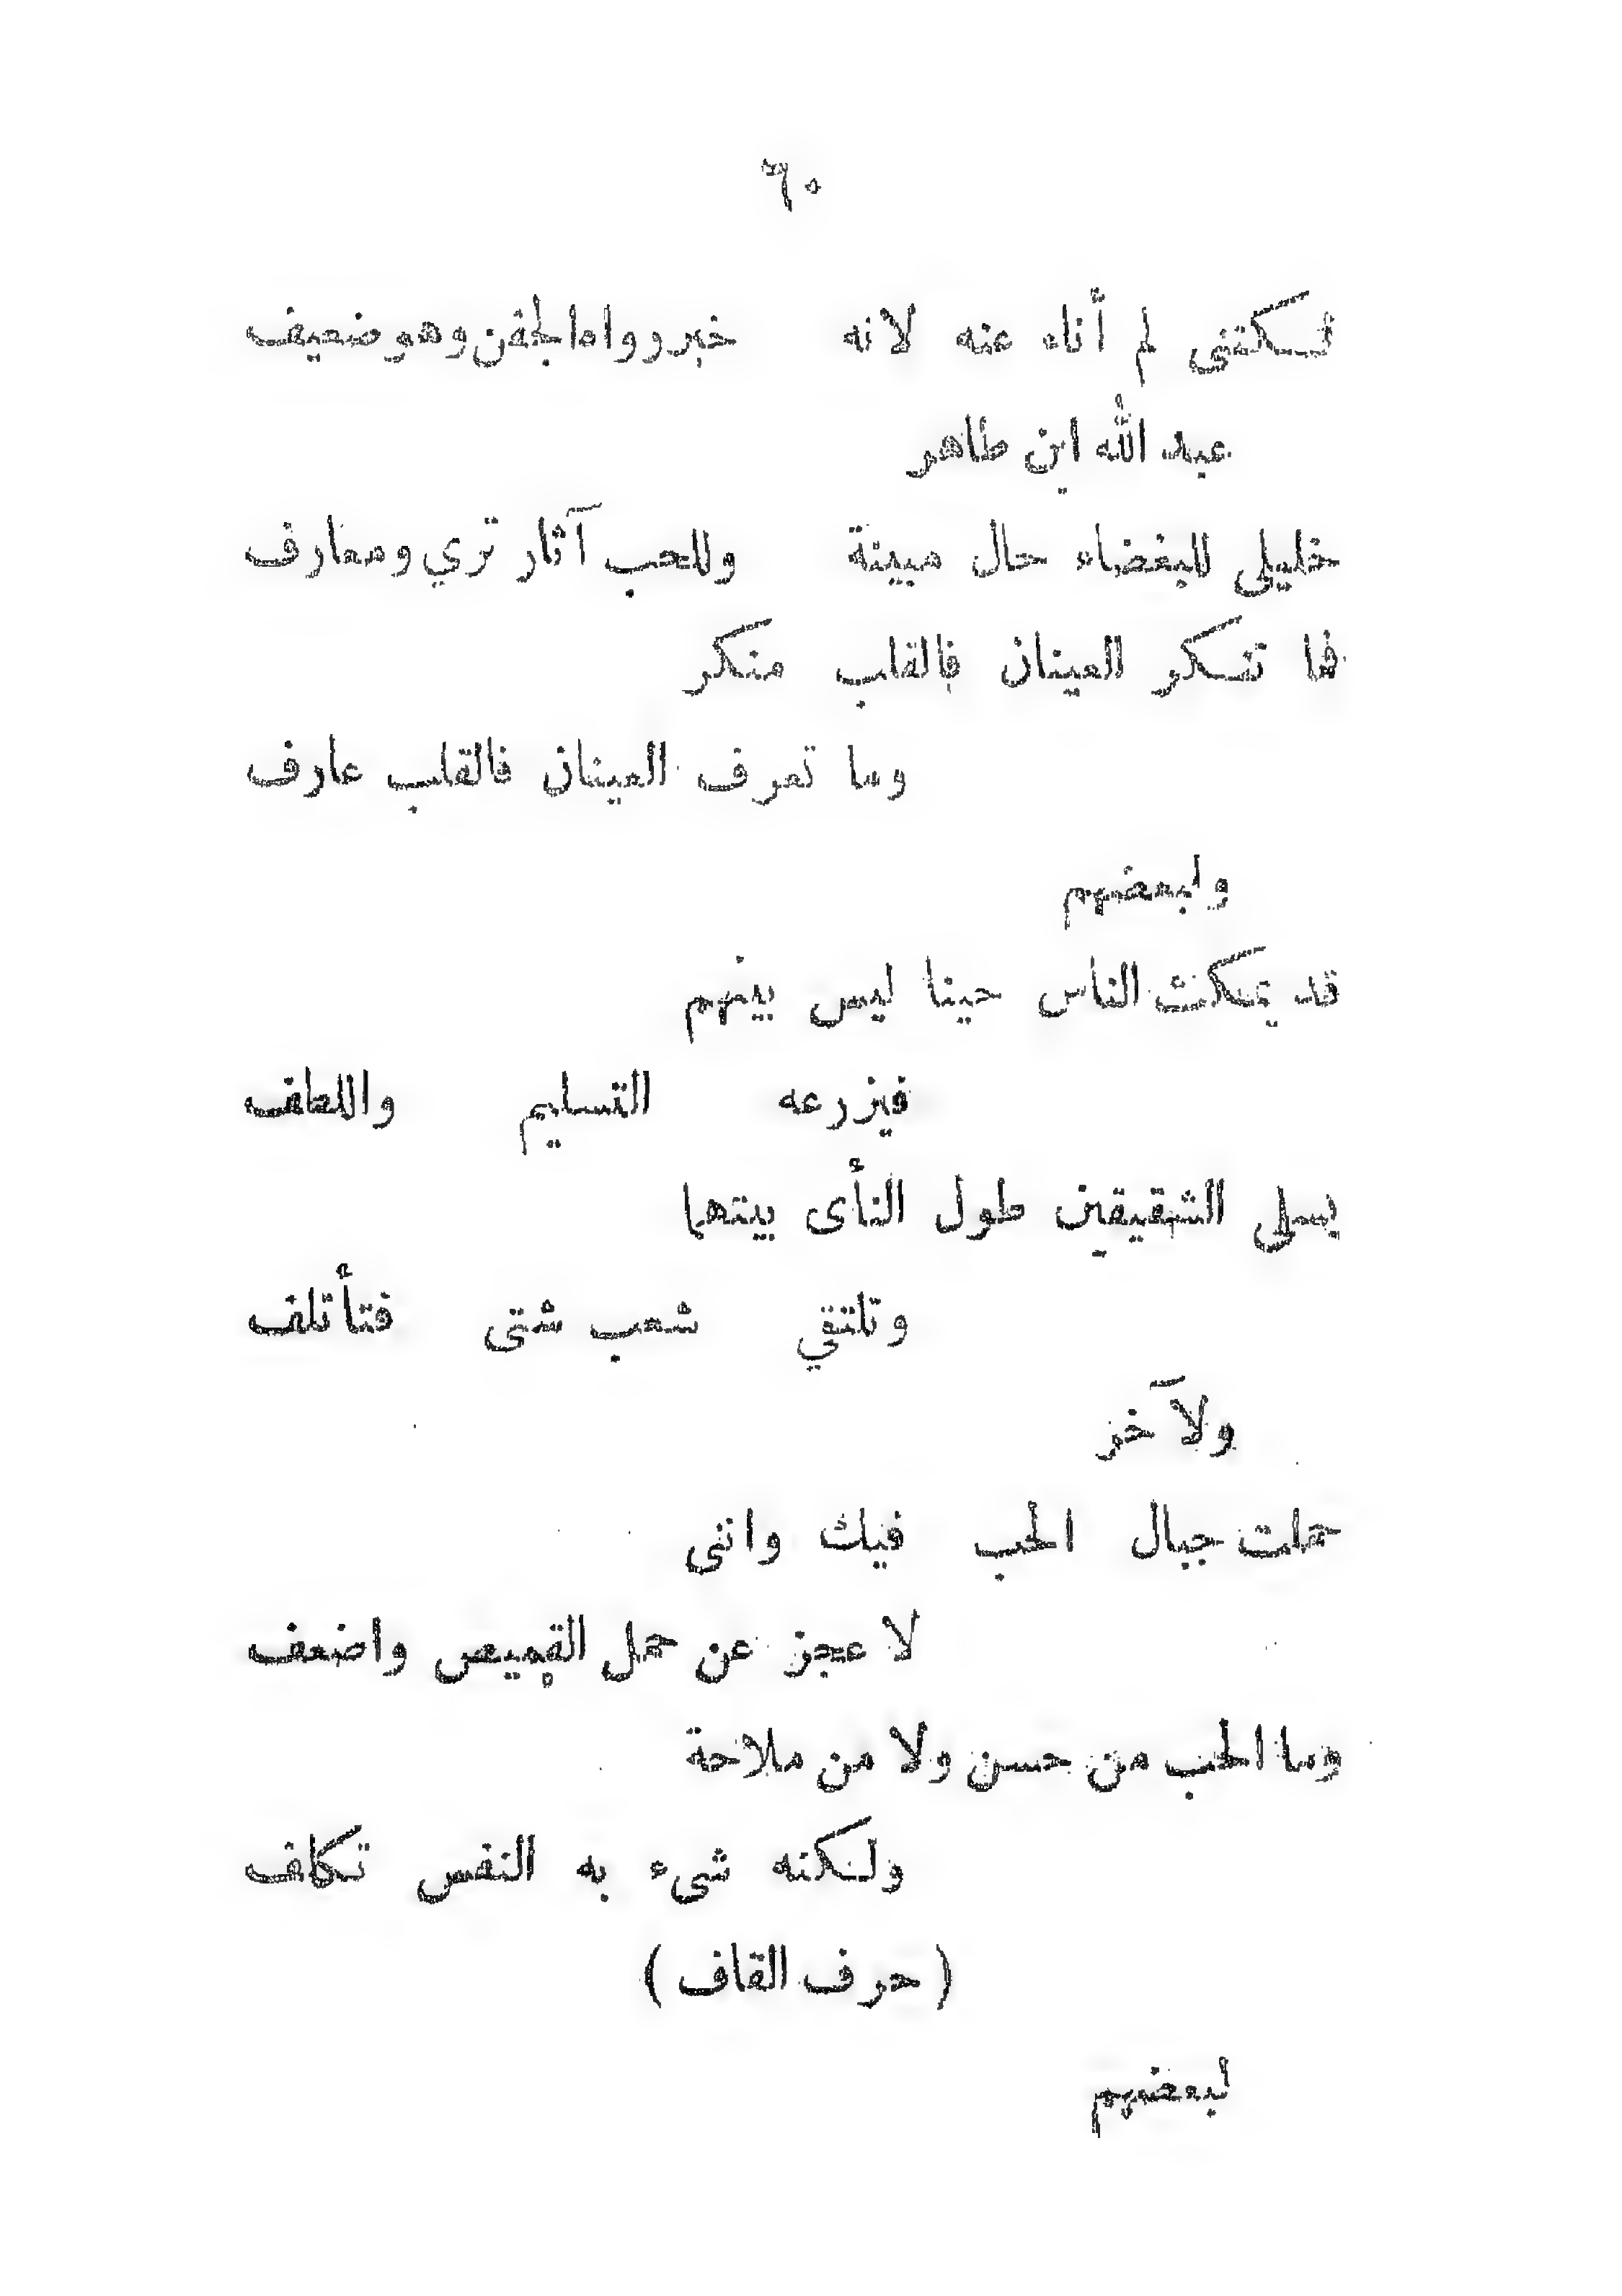 ٦٠
لكننى لم أناه عنه لانه خبر رواه الجفن وهو ضعيف
عبد الله ابن طاهر
خليلى للبغضاء حال مبينة وللحب آثار ترى ومعارف
فما تنكر العينان فالقلب منكر
وما تعرف العينان فالقلب عارف
ولبعضهم
قد يمكث الناس حينا ليس بينهم
فيزرعه التسليم واللطف
يسلى الشقيقين طول النأى بينهما
وتلتقي شعب شتى فتأتلف
ولآخر
حملت جبال الحب فيك واننى
لا عجز عن حمل القميص واضعف
وما الحب من حسن ولا من ملاحة
ولكنه شىء به النفس تكلف
( حرف القاف )
لبعضهم